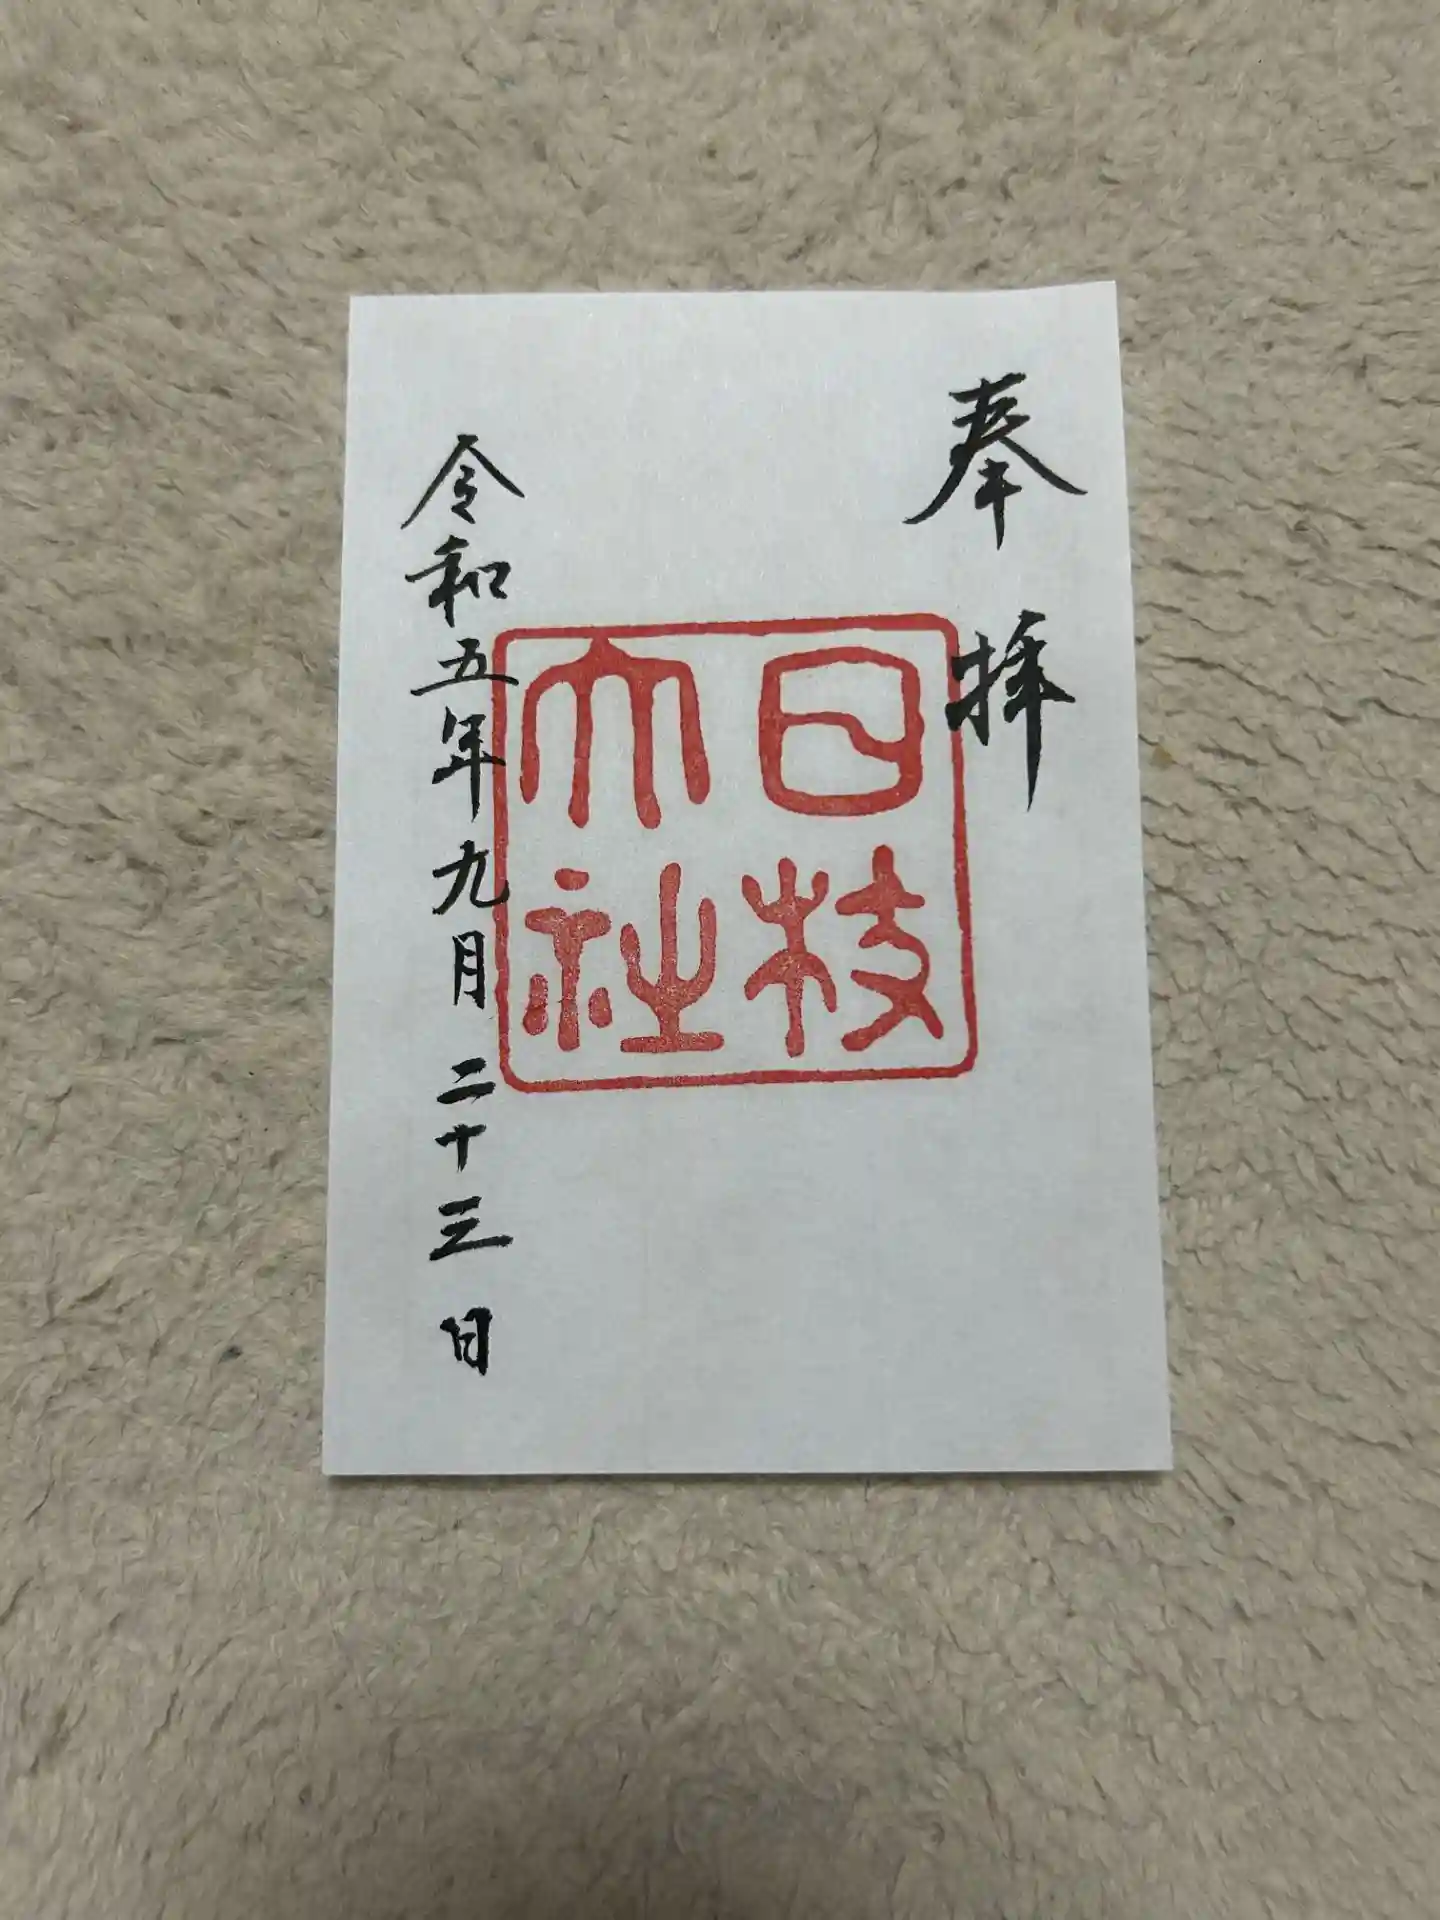 奉拝
日枝
大社
令和五年九月二十三日